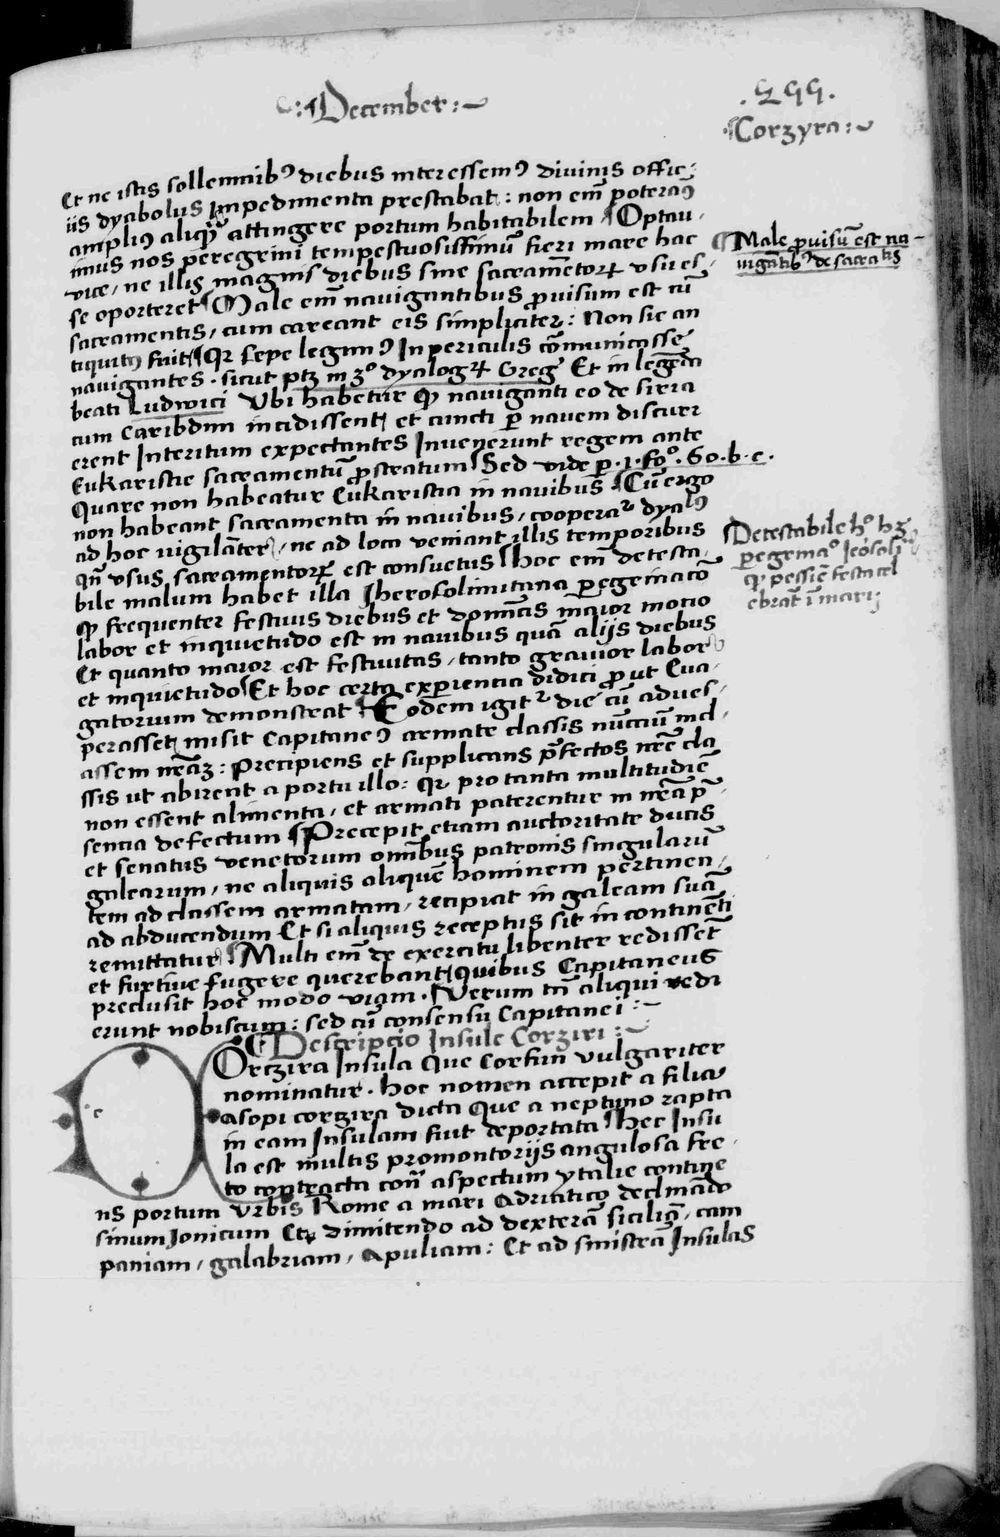 : December :
. 555 .
Corzyra :
Et ne istis sollemnibꝰ diebus interessemꝰ divinis offic-
iis dyabolus impedimenta prestabat : non em̄ poteramꝰ
ampliꝰ attingere portum habitabilem Optav-
imus nos peregrini tempestuosissimū fieri mare hac
vice / ne illis magnis diebus sine sacramētorꝝ usu es-
se oporteret Male em̄ navigantibus ꝓvisum est cū
sacramentis / cum careant eis simpliciter : Non sic an
tiquitꝰ fuit Qꝛ sepe legimꝰ In periculis cōmunicasse
navigantes . sicut ptꝫ in 3° dyalogꝝ Greg Et in legēda
beati Ludwici Ubi habetur ꝙ naviganti eo de siria
cum Caribdim incidissent et cuncti ꝑ navem discurr
erent Interitum expectantes Invenerunt regem ante
Eukaristie sacramentū ꝓstratum Sed vide ꝑ . 1 . fo° . 60 . b . c .
Quare non habeatur Eukaristia in navibus Cū ergo
non habeant sacramenta in navibus / cooperaᷣ dyalꝰ
ad hoc vigilāter / ne ad loca veniant illis temporibus
qn̄ usus sacramentorꝝ est consuetus Hoc em̄ detesta-
bile malum habet illa Jherosolimitana ꝑegrinacō
ꝙ frequenter festivis diebus et domīcis maior motio
labor et inquietudo est in navibus quā aliis diebus
Et quanto maior est festivitas / tanto gravior labor
et inquietudo Et hoc certa exꝑientia didici ꝓut Eva-
gatorium demonstrat Eodem igitᷣ die cū adves-
perasset misit Capitaneꝰ armate classis nūcciū in cl
assem nr̄aꝫ : Precipiens et supplicans p̄fectos nr̄e cla
ssis ut abirent a portu illo : qꝛ pro tanta multitudīe
non essent alimenta / et armati paterentur in nr̄a p̄-
sencia defectum Precepit etiam auctoritate ducis
et senatus venetorum omībus patronis singularū
galearum / ne aliquis aliquē hominem pertinen-
tem ad classem armatam / recipiat in galeam suā
ad abducendum Et si aliquis receptus sit in continēti
remittatur Multi em̄ de exercitu libenter redissēt
et furtive fugere querebant quibus Capitaneus
preclusit hoc modo viam . Verum tn̄ aliqui redi
erunt nobiscum : sed cū consensu Capitanei :
Descripcio Insule Corziri :
Orczira Insula que Corfun vulgariter
nominatur . hoc nomen accepit a filia
asopi corczira dicta Que a neptuno rapta
in eam Insulam fuit deportata Hec Insu
la est multis promontoriis angulosa fre-
to contracta con̄ aspectum ytalie contine
ns portum Urbis Rome a mari Adriatico declināndo
sinum Jonicum dimitendo ad dexterā siciliā / cam
paniam / galabriam / Apuliam : Et ad sinistrā Insulas
Male ꝓvisū est na-
vigātibꝰ de sacratis
Detestabile h° hꝫ
ꝑegrina° Jeōsoli
ꝙ pessīe festa cel
ebrāt ī mari